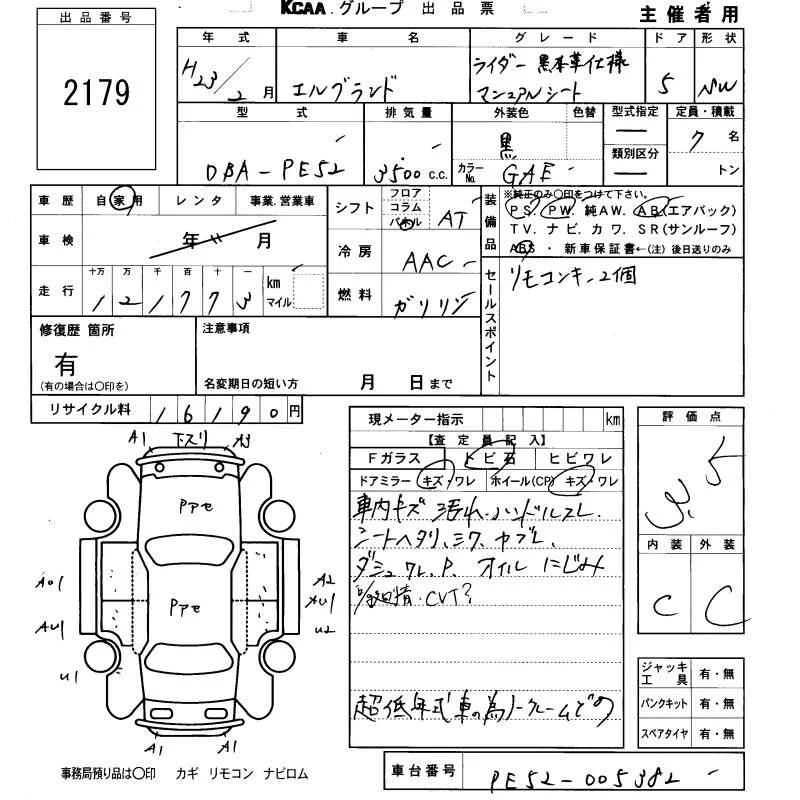 KCAA.グループ 出品票
主催者用
出品番号
2179
年式 車名 グレード ドア 形状
H23/2月 エルグランド ライダー 黒本革仕様 マニュアルシート 5 NW
型式 排気量 外装色 色替 型式指定 定員・積載
DBA-PE52 3500 c.c. 黒 カラーNo. GAE 類別区分 7名 トン
車歴 自家用 レンタ 事業.営業車
車検 年 月
走行 十万 万 千 百 十 一
121773 km マイル
シフト フロア コラム パネル AT
冷房 AAC
燃料 ガソリン
装備品 ※純正のみ〇印をつけて下さい。
PS. PW. 純AW. AB(エアバック)
TV. ナビ. カワ. SR(サンルーフ)
ABS ・ 新車保証書←(注) 後日送りのみ
セールスポイント
リモコンキー2個
修復歴 箇所
有
(有の場合は〇印を)
注意事項
名変期日の短い方 月 日まで
リサイクル料 16190円
現メーター指示 km
【査定員記入】
Fガラス トビ石 ヒビワレ
ドアミラー キズ・ワレ ホイール(CP) キズ・ワレ
車内キズ 汚れ.ハンドルスレ.
シートヘタリ、シワ、ヤブレ、
ダシュワレ、P. オイルにじみ
CVT?
超低年式車の為ノークレームでの
評価点
3.5
内装 外装
C C
ジャッキ工具 有・無
パンクキット 有・無
スペアタイヤ 有・無
A1 下スリ A3
Pアセ
Pアセ
A01
AU1
U1
A2
AU1
U2
A1 A1
事務局預り品は〇印 カギ リモコン ナビロム
車台番号 PE52-005382